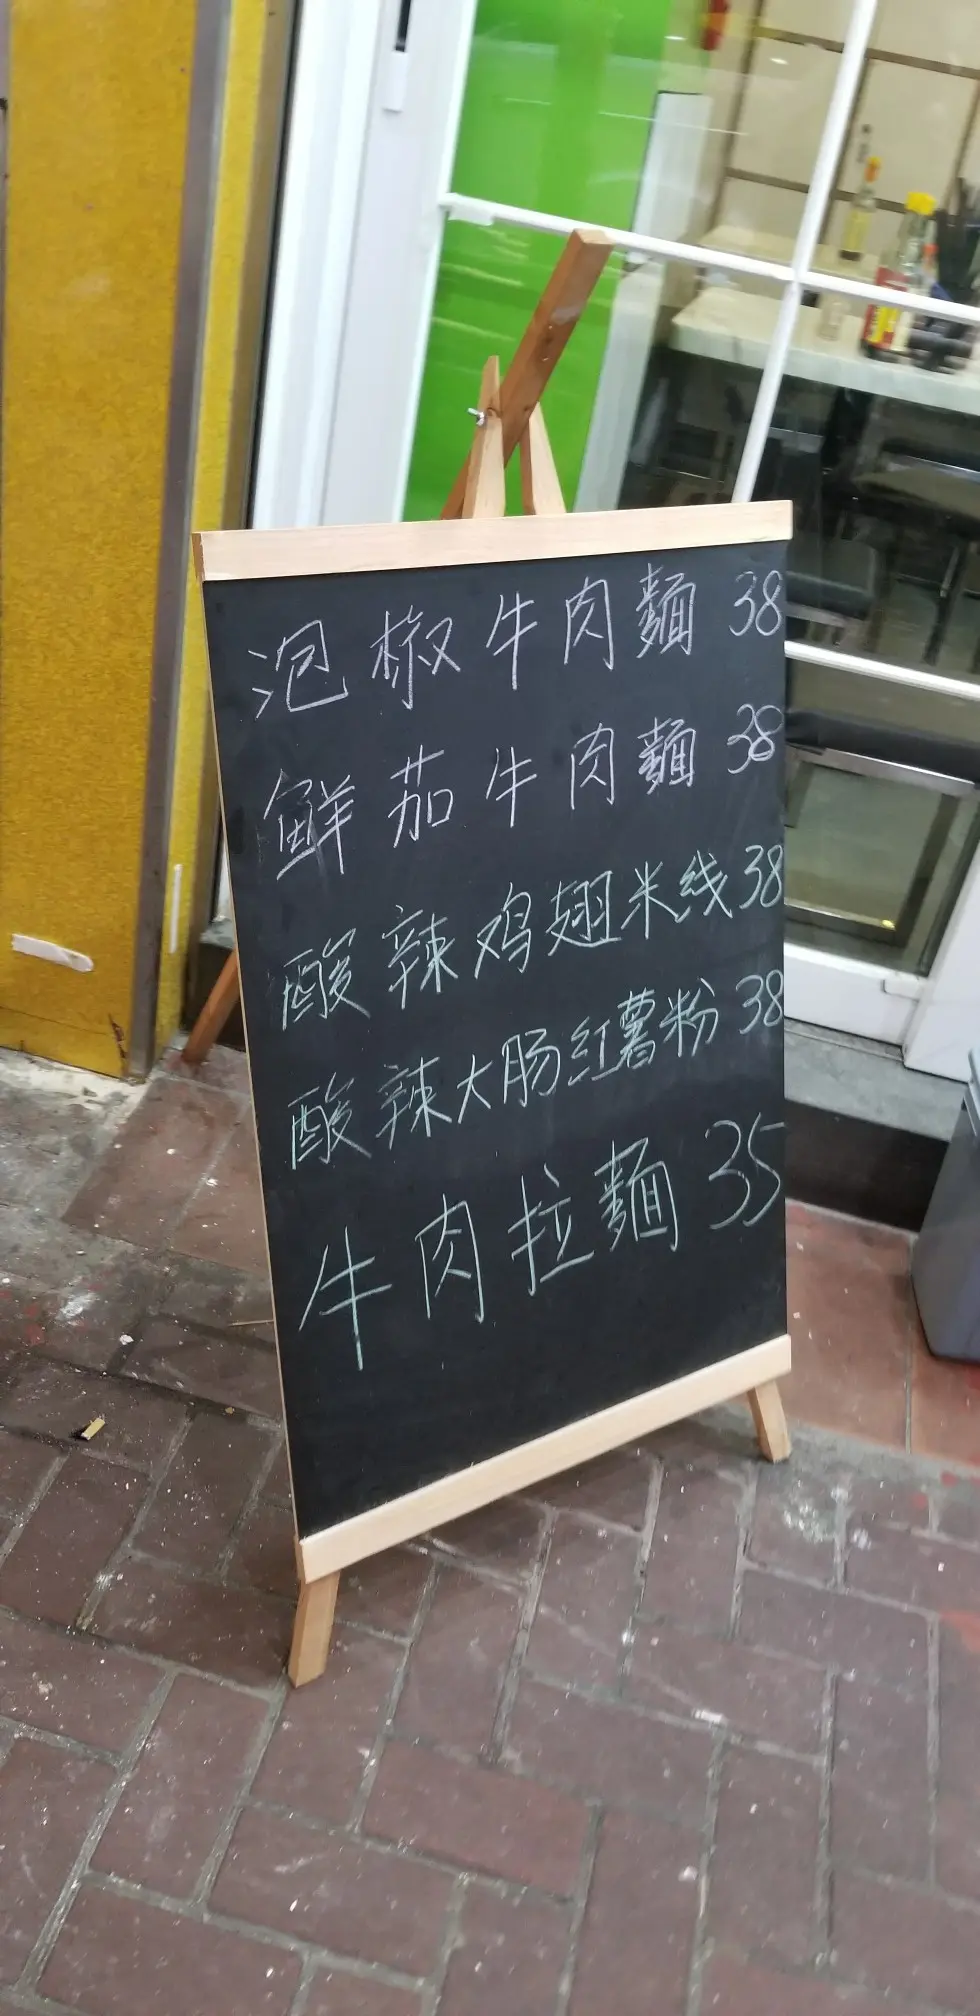 泡椒牛肉麵 38
鲜茄牛肉麵 38
酸辣鸡翅米线 38
酸辣大肠红薯粉 38
牛肉拉麵 35